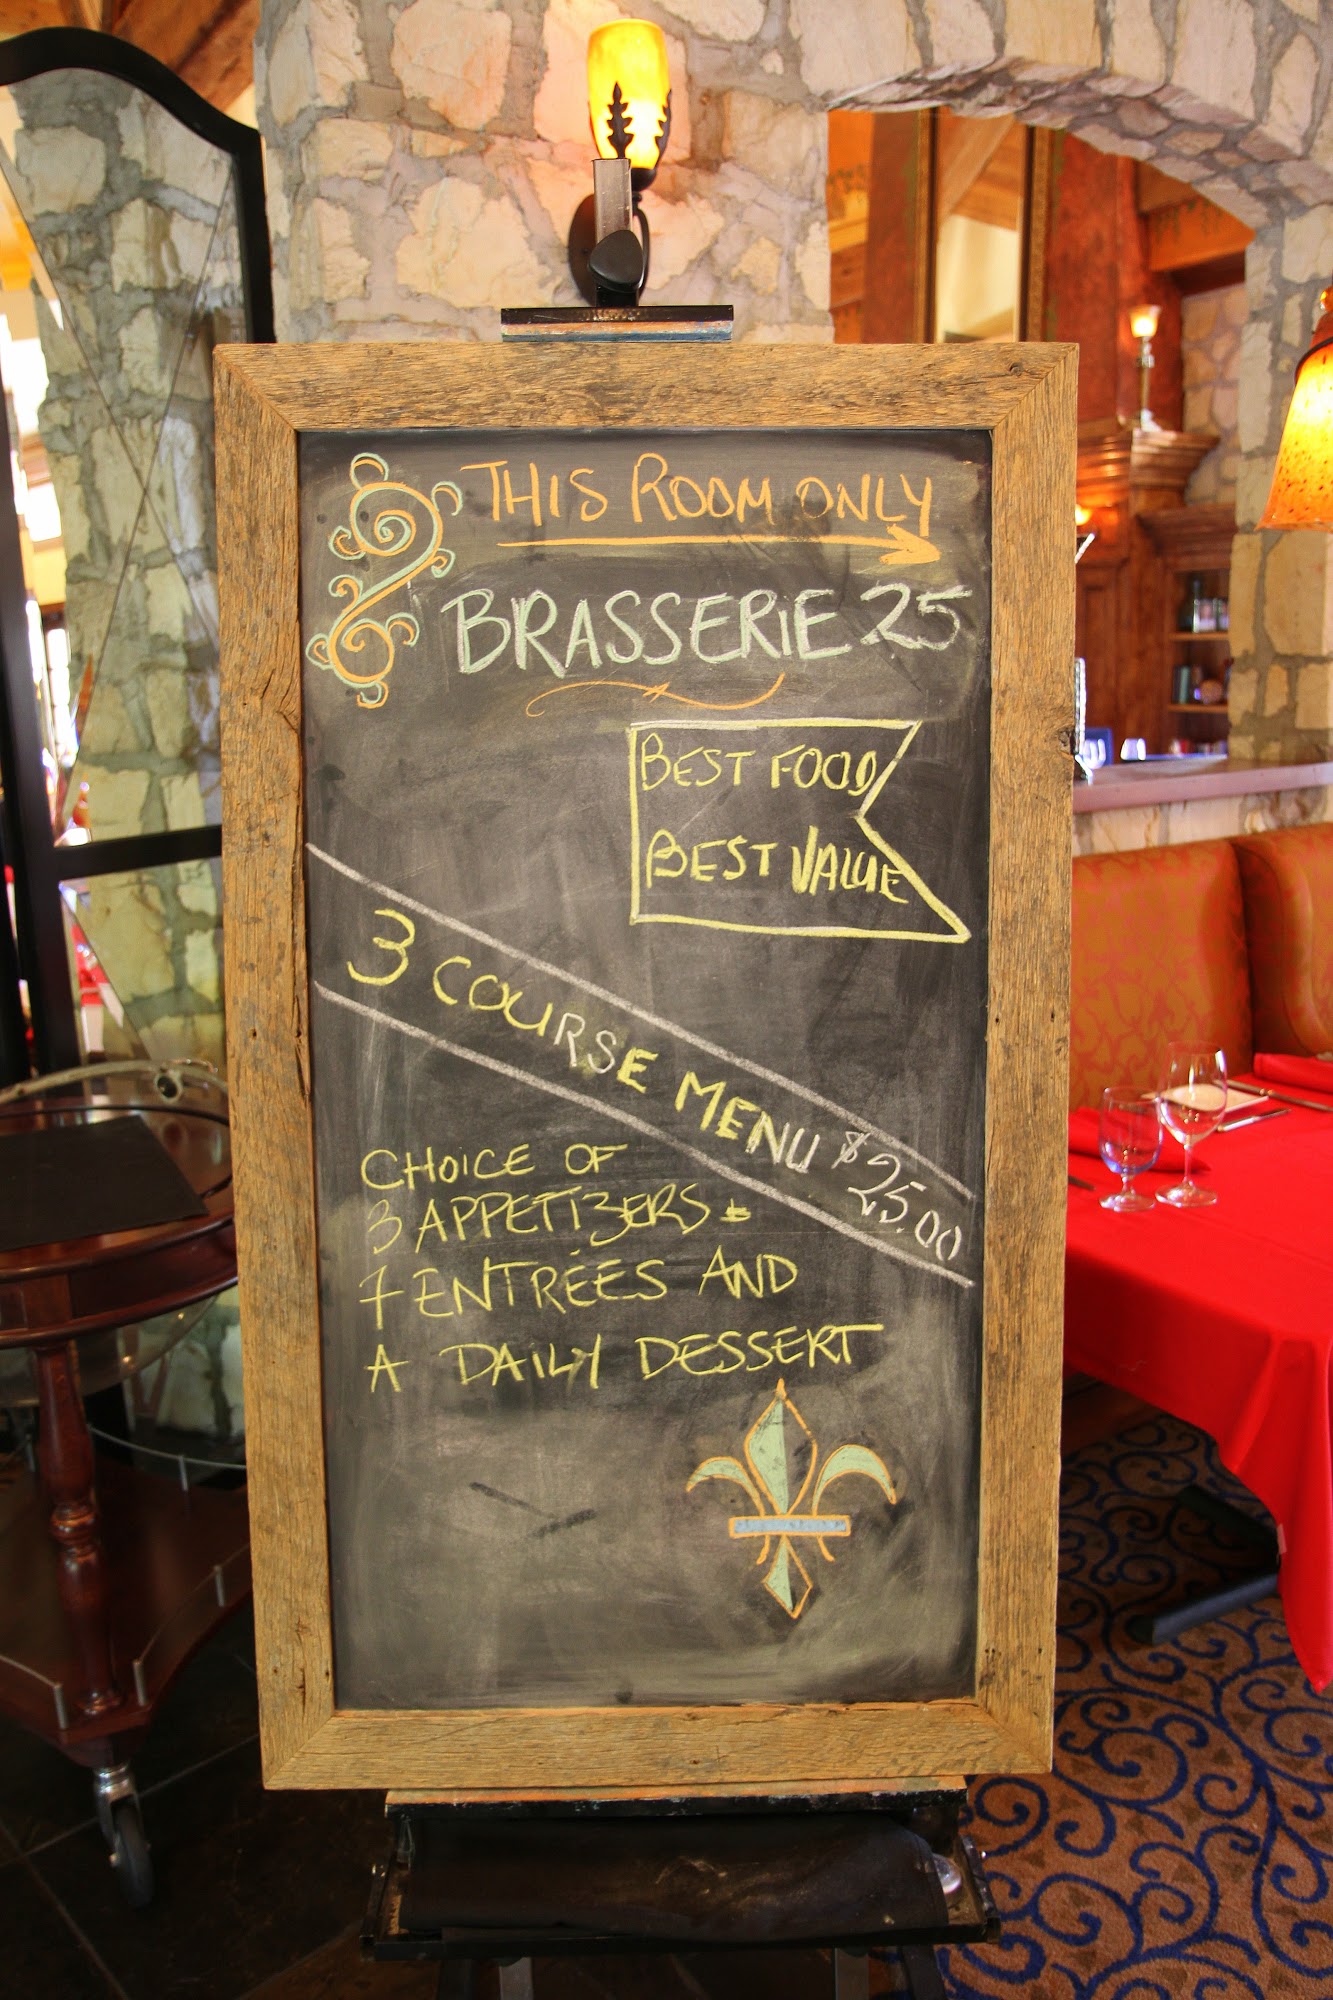 THIS ROOM ONLY
BRASSERIE 25
BEST FOOD
BEST VALUE
3 COURSE MENU $25.00
CHOICE OF
3 APPETIZERS
7 ENTRÉES AND
A DAILY DESSERT